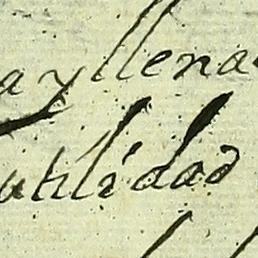 a y llena
utilidad